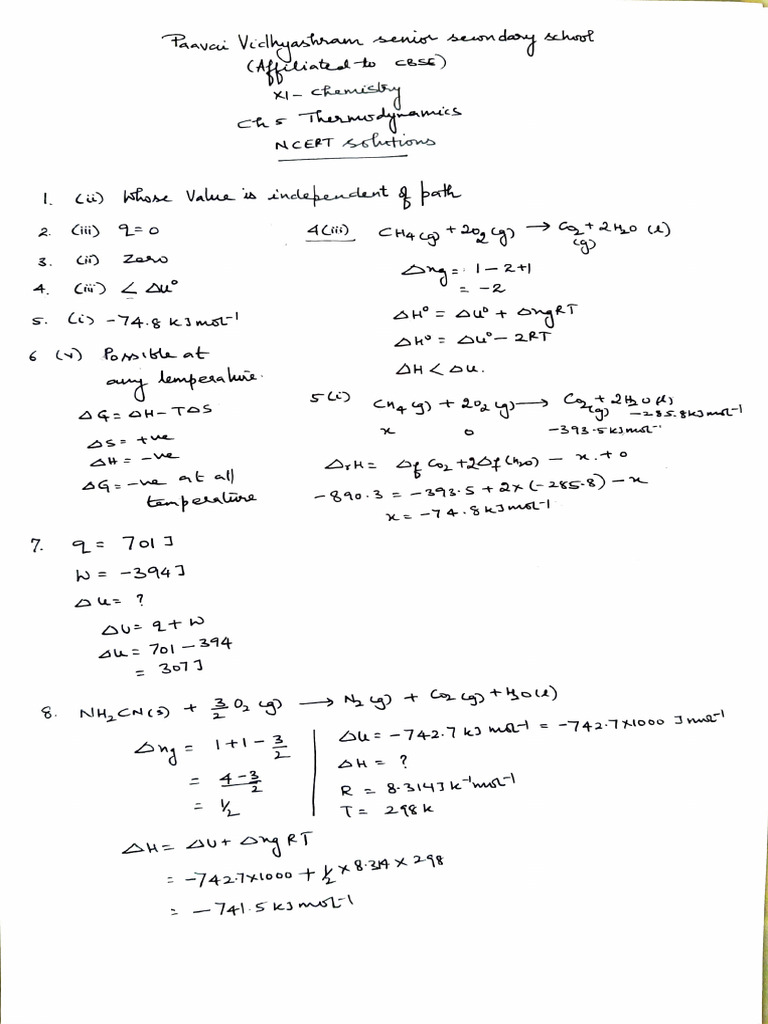 Paavai Vidhyashram senior secondary school
(Affiliated to CBSE)
XI - Chemistry
Ch 5 Thermodynamics
NCERT Solutions
1. (ii) Whose Value is independent of path
2. (iii) q = 0
3. (ii) Zero
4. (iii) < ΔU°
5. (i) -74.8 kJ mol-1
6 (v) Possible at
any temperature.
ΔG = ΔH - TΔS
ΔS = +ve
ΔH = -ve
ΔG = -ve at all
temperature
4(iii) CH4(g) + 2O2(g) → CO2 + 2H2O (l)
(g)
Δng = 1 - 2+1
= -2
ΔH° = ΔU° + ΔngRT
ΔH° = ΔU° - 2RT
ΔH < ΔU.
5(i) CH4(g) + 2O2(g) → CO2 + 2H2O(l)
(g) -285.8kJ mol-1
x 0 -393.5kJ mol-
ΔrH = ΔfCO2 + 2Δf(H2O) - x + 0
-890.3 = -393.5 + 2x(-285.8) - x
x = -74.8kJ mol-1
7. q = 701 J
W = -394 J
ΔU = ?
ΔU = q + W
ΔU = 701 - 394
= 307J
8. NH2CN(s) + 3/2 O2(g) → N2(g) + CO2(g) + H2O(l)
Δng = 1+1 - 3/2
= 4-3/2
= 1/2
ΔU = -742.7 kJ mol-1 = -742.7x1000 J mol-1
ΔH = ?
R = 8.314J k-1mol-1
T = 298k
ΔH = ΔU + ΔngRT
= -742.7x1000 + 1/2 x 8.314 x 298
= -741.5 kJ mol-1